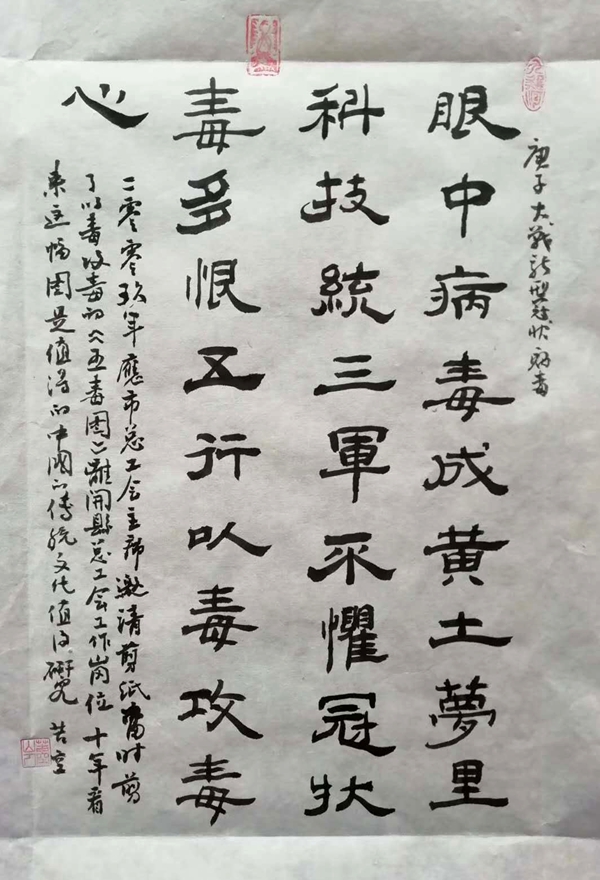 庚子大戰新型冠狀病毒
眼中病毒成黄土夢里
科技統三軍不懼冠狀
毒多恨五行以毒攻毒
心
二零零玖年應市总工会主席邀请剪纸當时剪
了以毒攻毒的《五毒图》離開縣总工会工作崗位十年看
来这幅图是值得的中國的傳統文化值得研究 苦空